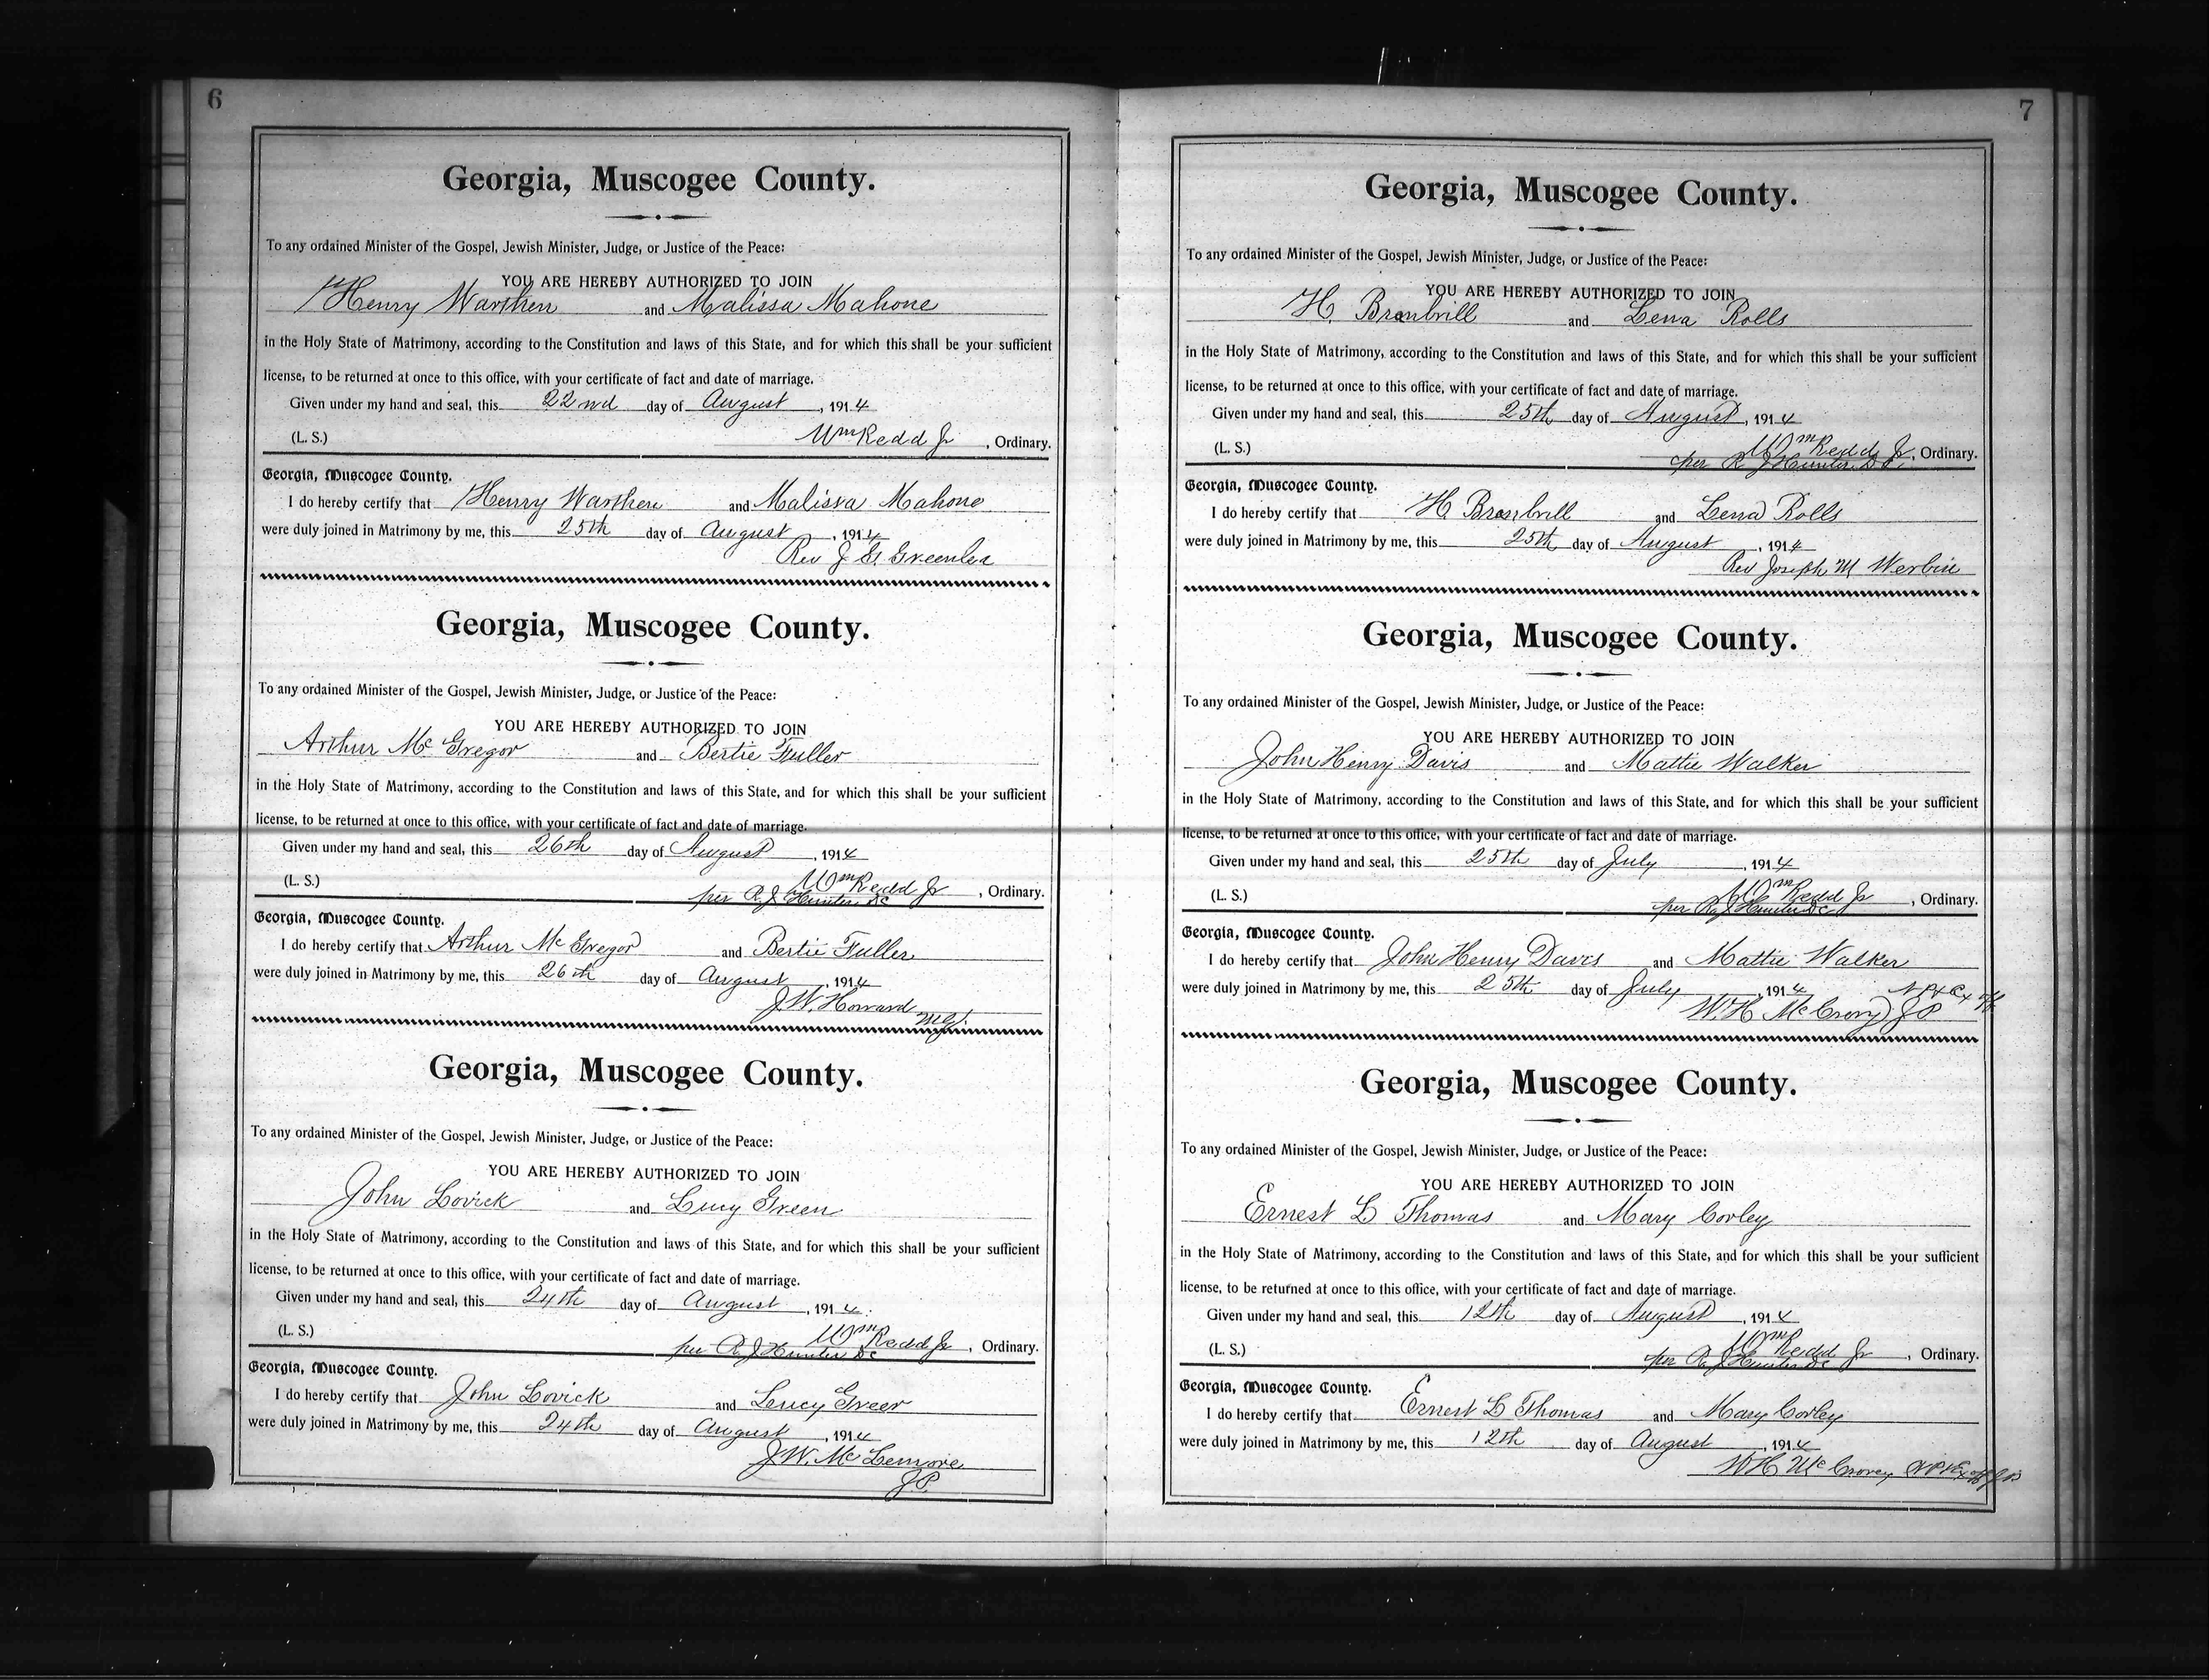 6
Georgia, Muscogee County.
To any ordained Minister of the Gospel, Jewish Minister, Judge, or Justice of the Peace:
YOU ARE HEREBY AUTHORIZED TO JOIN
Henry Warthen and Malissa Mahone
in the Holy State of Matrimony, according to the Constitution and laws of this State, and for which this shall be your sufficient
license, to be returned at once to this office, with your certificate of fact and date of marriage.
Given under my hand and seal, this 22nd day of August, 1914
(L. S.) Wm Redd Jr, Ordinary.
Georgia, Muscogee County.
I do hereby certify that Henry Warthen and Malissa Mahone
were duly joined in Matrimony by me, this 25th day of August, 1914
Rev J. G. Greenlea
Georgia, Muscogee County.
To any ordained Minister of the Gospel, Jewish Minister, Judge, or Justice of the Peace:
YOU ARE HEREBY AUTHORIZED TO JOIN
Arthur Mc Gregor and Bertie Fuller
in the Holy State of Matrimony, according to the Constitution and laws of this State, and for which this shall be your sufficient
license, to be returned at once to this office, with your certificate of fact and date of marriage.
Given under my hand and seal, this 26th day of August, 1914
(L. S.) Wm Redd Jr, Ordinary.
per R. J. Hunter DC
Georgia, Muscogee County.
I do hereby certify that Arthur Mc Gregor and Bertie Fuller
were duly joined in Matrimony by me, this 26th day of August, 1914
J. W. Howard
M.G.
Georgia, Muscogee County.
To any ordained Minister of the Gospel, Jewish Minister, Judge, or Justice of the Peace:
YOU ARE HEREBY AUTHORIZED TO JOIN
John Lovick and Lucy Green
in the Holy State of Matrimony, according to the Constitution and laws of this State, and for which this shall be your sufficient
license, to be returned at once to this office, with your certificate of fact and date of marriage.
Given under my hand and seal, this 24th day of August, 1914.
(L. S.) Wm Redd Jr, Ordinary.
per R. J. Hunter DC
Georgia, Muscogee County.
I do hereby certify that John Lovick and Lucy Greer
were duly joined in Matrimony by me, this 24th day of August, 1914
J. W. Mc Lemore
J.P.
7
Georgia, Muscogee County.
To any ordained Minister of the Gospel, Jewish Minister, Judge, or Justice of the Peace:
YOU ARE HEREBY AUTHORIZED TO JOIN
H. and Lena Rolls
in the Holy State of Matrimony, according to the Constitution and laws of this State, and for which this shall be your sufficient
license, to be returned at once to this office, with your certificate of fact and date of marriage.
Given under my hand and seal, this 25th day of August, 1914
(L. S.) Wm Redd Jr, Ordinary.
per R J Hunter D.C.
Georgia, Muscogee County.
I do hereby certify that H. and Lena Rolls
were duly joined in Matrimony by me, this 25th day of August, 1914
Rev Joseph M Werbin
Georgia, Muscogee County.
To any ordained Minister of the Gospel, Jewish Minister, Judge, or Justice of the Peace:
YOU ARE HEREBY AUTHORIZED TO JOIN
John Henry Davis and Mattie Walker
in the Holy State of Matrimony, according to the Constitution and laws of this State, and for which this shall be your sufficient
license, to be returned at once to this office, with your certificate of fact and date of marriage.
Given under my hand and seal, this 25th day of July, 1914
(L. S.) Wm Redd Jr, Ordinary.
per R. J. Hunter DC
Georgia, Muscogee County.
I do hereby certify that John Henry Davis and Mattie Walker
were duly joined in Matrimony by me, this 25th day of July, 1914
W. H. Mc Crory N P & Ex off J P
Georgia, Muscogee County.
To any ordained Minister of the Gospel, Jewish Minister, Judge, or Justice of the Peace:
YOU ARE HEREBY AUTHORIZED TO JOIN
Ernest L Thomas and Mary Corley
in the Holy State of Matrimony, according to the Constitution and laws of this State, and for which this shall be your sufficient
license, to be returned at once to this office, with your certificate of fact and date of marriage.
Given under my hand and seal, this 12th day of August, 1914
(L. S.) Wm Redd Jr, Ordinary.
per R. J. Hunter DC
Georgia, Muscogee County.
I do hereby certify that Ernest L Thomas and Mary Corley
were duly joined in Matrimony by me, this 12th day of August, 1914
W H Mc Crory N P & Ex off J P